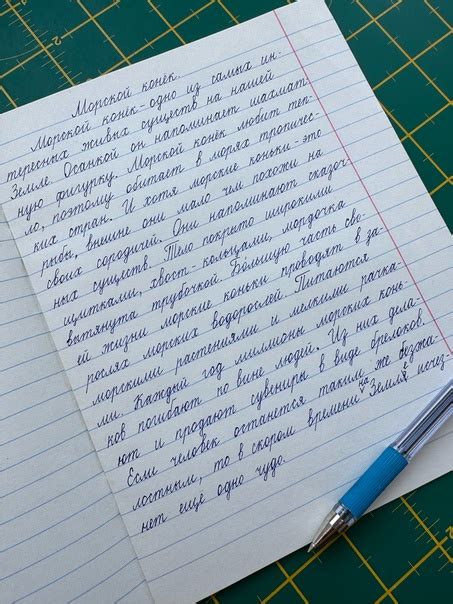 Морской конёк.
Морской конёк - одно из самых ин-
тересных живых существ на нашей
Земле. Осанкой он напоминает шахмат-
ную фигурку. Морской конёк любит теп-
ло, поэтому обитает в морях тропичес-
ких стран. И хотя морские коньки - это
рыбы, внешне они мало чем похожи на
своих сородичей. Они напоминают сказоч-
ных существ. Тело покрыто широкими
щитками, хвост - кольцами, мордочка
вытянута трубочкой. Бо́льшую часть сво-
ей жизни морские коньки проводят в за-
рослях морских водорослей. Питаются
морскими растениями и мелкими рачка-
ми. Каждый год миллионы морских конь-
ков погибают по вине людей. Из них дела-
ют и продают сувениры в виде брелоков.
Если человек останется таким же безжа-
лостным, то в скором времени на Земле исчез-
нет ещё одно чудо.